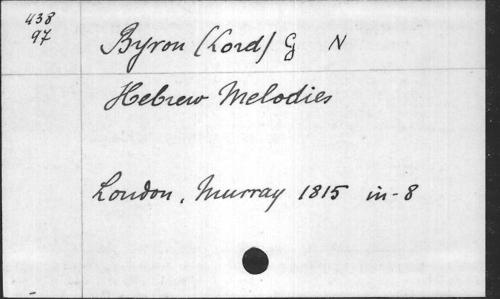 438
97
Byron (Lord) G N
Hebrew Melodies
London, Murray 1815 in-8